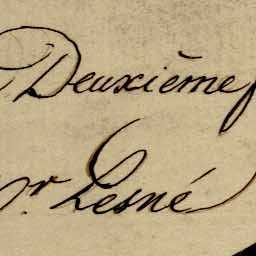 Deuxième
r. Lesné